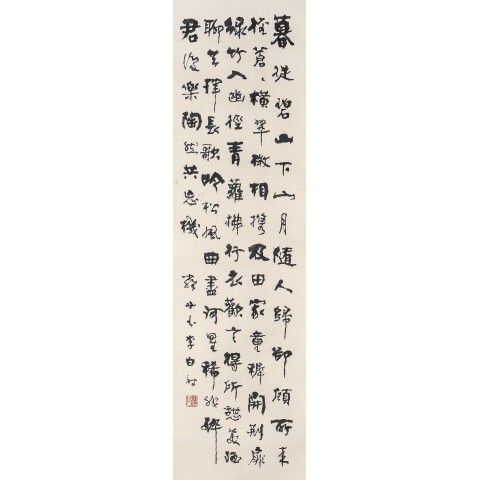 暮從碧山下山月隨人歸卻顧所來
徑蒼〻橫翠微相攜及田家童稺開荊扉
綠竹入幽徑青蘿拂行衣歡言得所憩美酒
聊共揮長歌吟松風曲盡河星稀我醉
君復樂陶然共忘機
李白詩